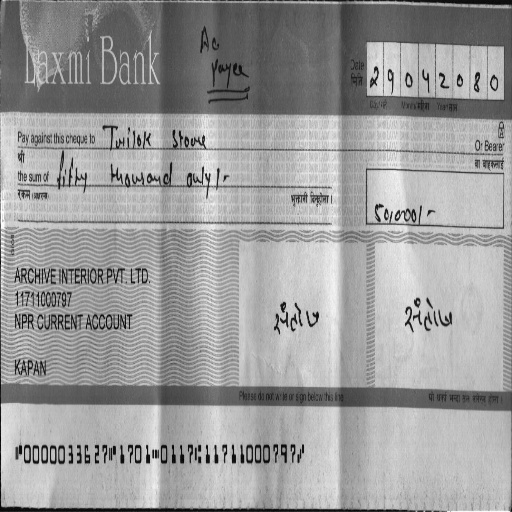 Laxmi Bank
A/c
payee
Date
मिति
29042080
Day/गते Month/महिना Year/साल
Pay against this cheque to Trilok Store Or Bearer
श्री वा वाहकलाई
the sum of fifty thousand only/-
रकम (अक्षरमा) भुक्तानी दिनुहोला ।
50,000/-
ARCHIVE INTERIOR PVT. LTD.
11711000797
NPR CURRENT ACCOUNT
KAPAN
संतोष संतोष
Please do not write or sign below this line
⑈000003362⑈1701⑉0117⑆11711000797⑈